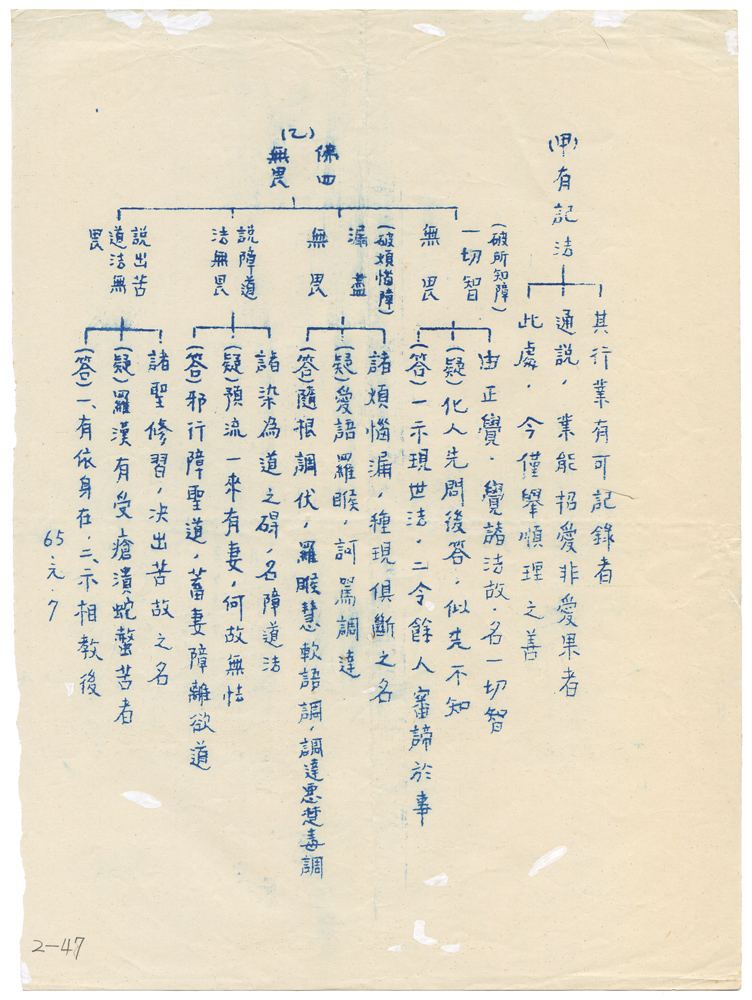 (甲)有記法
其行業有可記錄者
通說，業能招愛非愛果者
此處，今僅舉順理之善
(乙)
佛四
無畏
(破所知障)
一切智
無畏
由正覺．覺諸法故．名一切智
(疑)化人先問後答，似先不知
(答)一示現世法．二令餘人審諦於事
(破煩惱障)
漏盡
無畏
諸煩惱漏，種現俱斷之名
(疑)愛語羅睺，訶罵調達
(答)隨根調伏，羅睺慧軟語調，調達惡楚毒調
說障道
法無畏
諸染為道之碍，名障道法
(疑)預流一來有妻，何故無怯
(答)邪行障聖道，蓄妻障離欲道
說出苦
道法無
畏
諸聖修習，決出苦故之名
(疑)羅漢有受瘡潰蛇螫苦者
(答)一、有依身在，二、示相教後
65.元.7
2-47